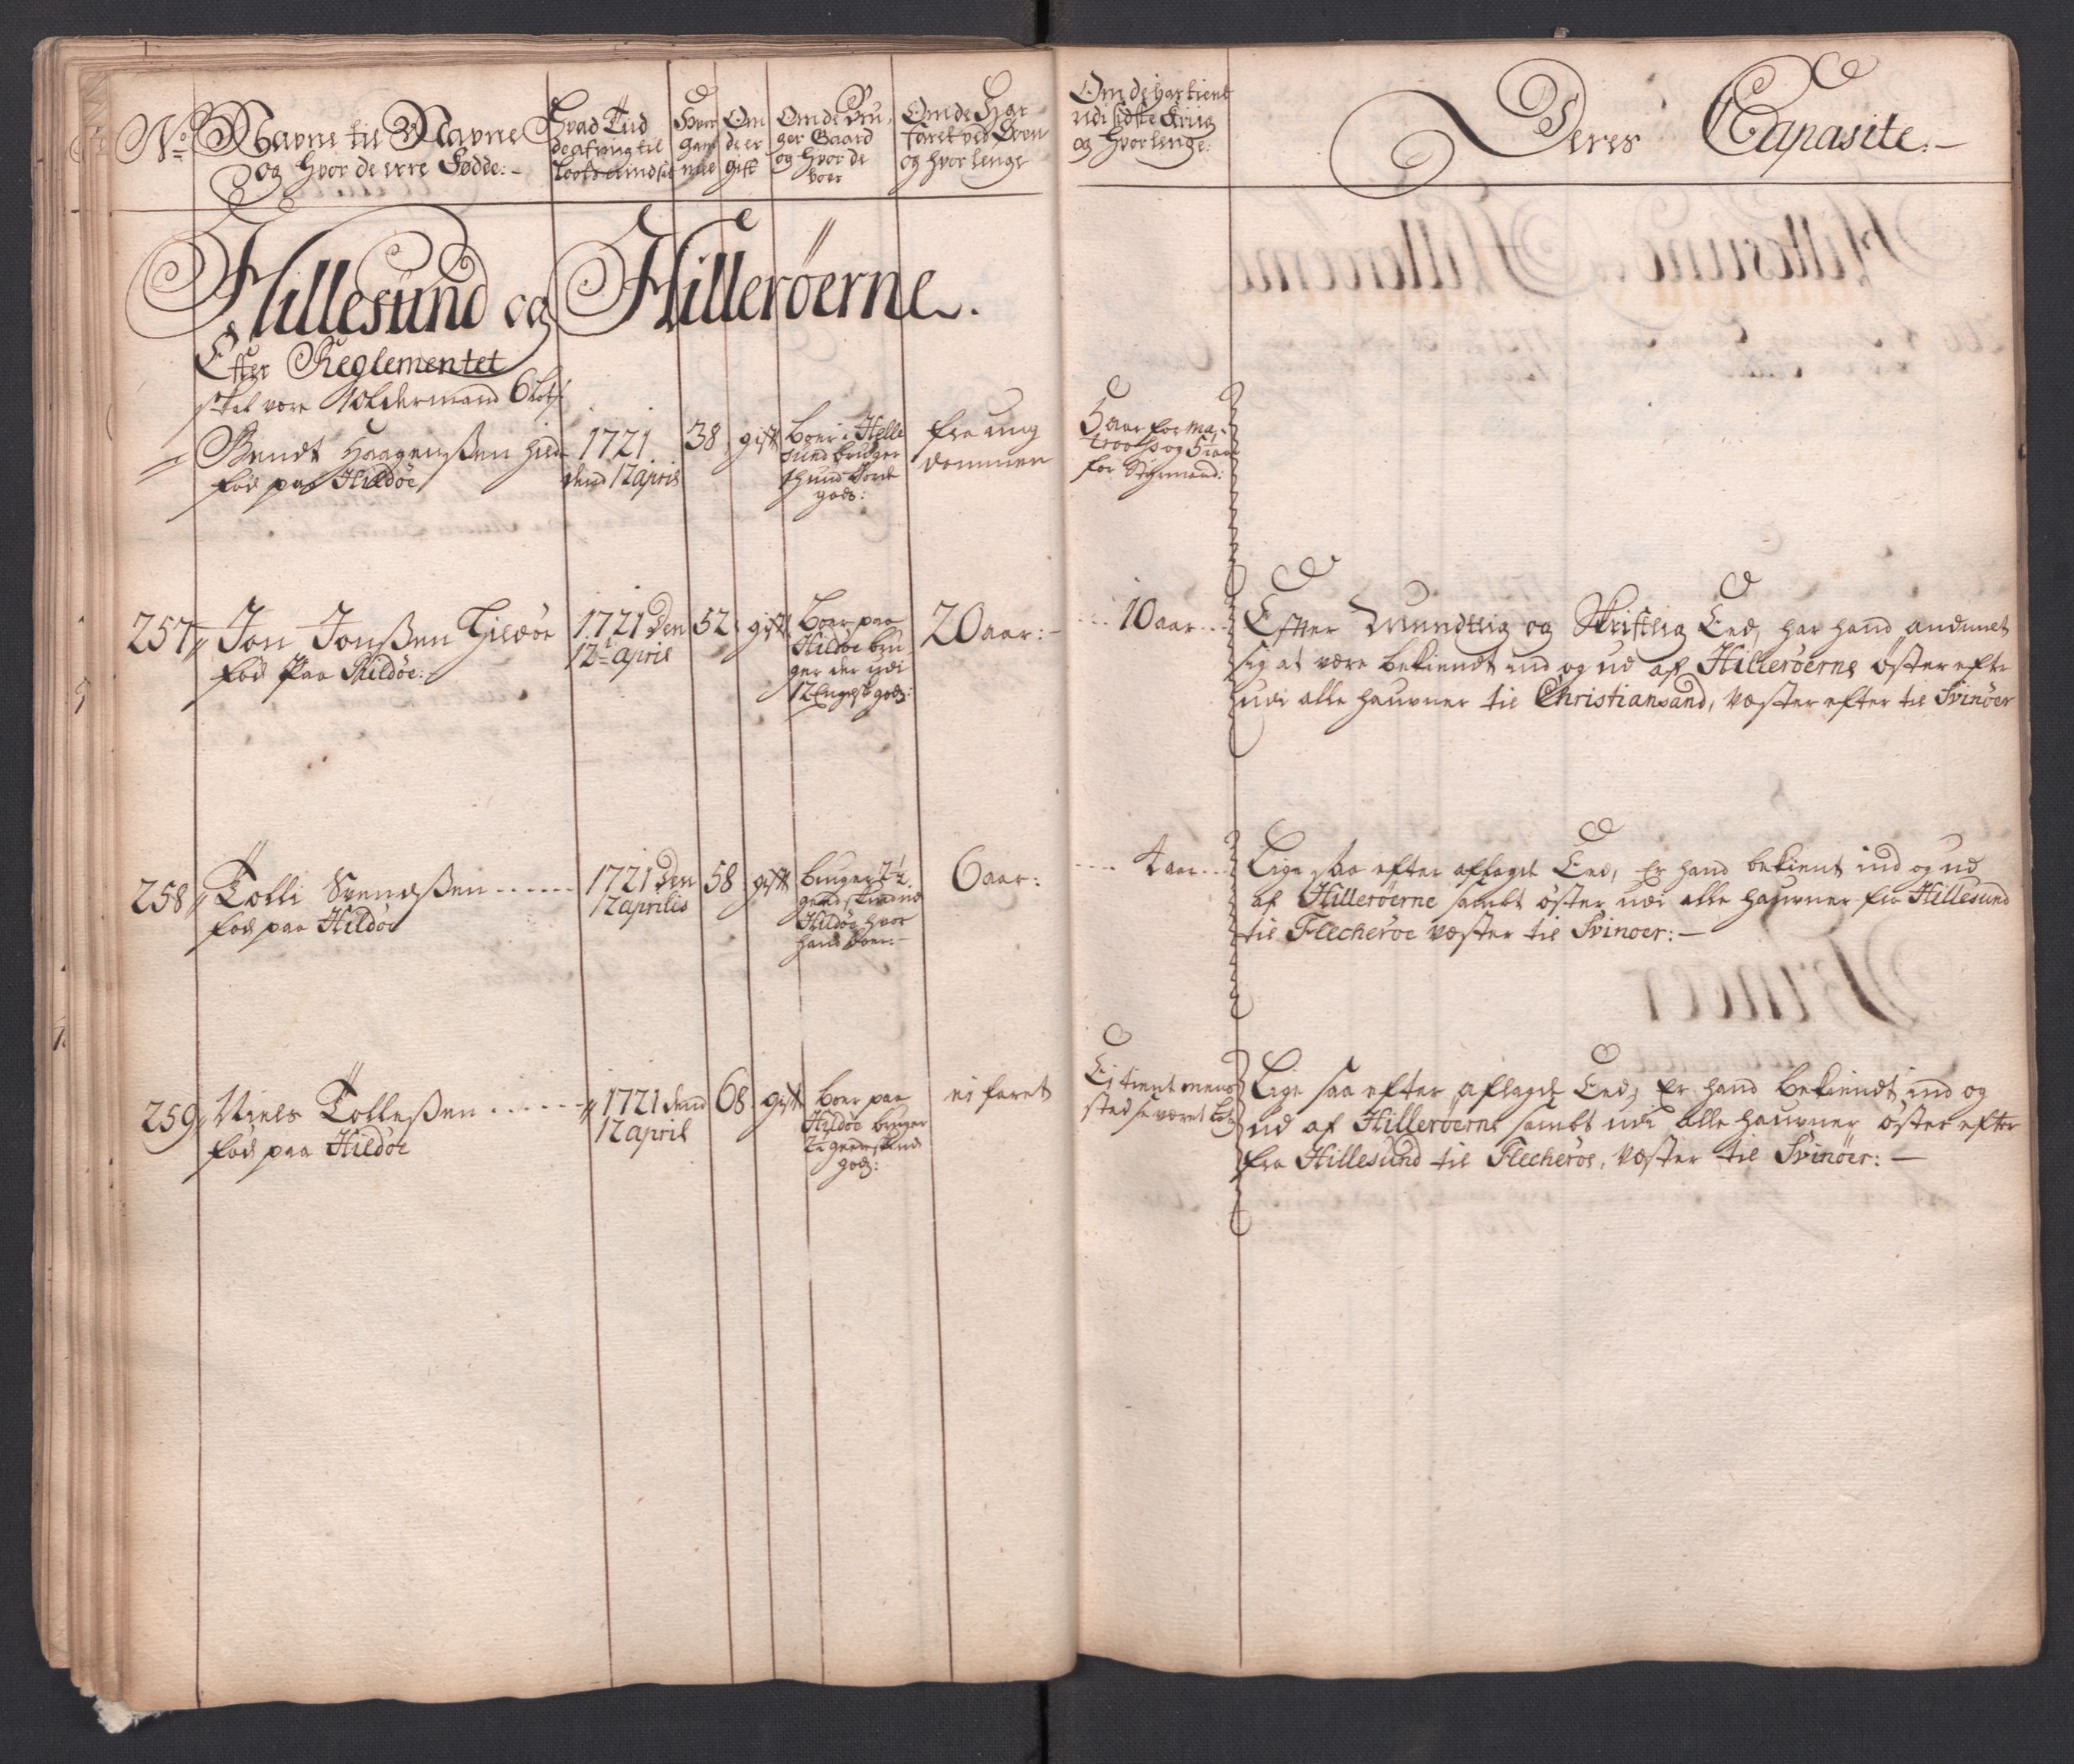 No
Nafne til Nafne
og Hvor de ere Fødde:-
Hvad Tiid
de afving til
Hvor
gam
mel
Om
de er
gift
Om de Bru,
ger Gaard
og Hvor de
boer
Om de Har
faret ved Oven
og hvor lenge
Om de har tient
udi sidste Kriig
og Hvorlenge:
Deres Capasite.-
Hillesund og Hillerøerne.
Efter Reglementet
skal være 1 Oldermand 6 Lots
Bendt Haagenssen Hild
fød paa Hildøe
1721
dend 12 april
38
gift
boer i Helle
sund bruger
1 hund Jorde
gods:
fra ung
dommen
5 aar for ma,
troots og 5 aar
for Styrmand:
257 Jon Jonssen Hildøe
fød Paa Hildøe:
1721 Den
12te april
52
gift
Boer paa
Hildøe bru
ger der udi
12 Engels gods:
20 aar:-
10 aar
Efter Mundtlig og Skriftlig Eed, har hand andmelt
sig at være bekiendt ind og ud af Hillerøerne øster efter
udi alle haufner til Christiansand, væster efter til Svinøer
258 Tolli Svendssen
fød paa Hildøe
1721 Den
12 aprilis
58
gift
bruger 2½
geedskind
Hildøe hvor
hand boer:-
6 aar:
4 aar
Lige saa efter aflagde Eed, Er hand bekient ind og ud
af Hillerøerne sambt øster udi alle haufner fra Hillesund
til Flecherøe væster til Svinoer:-
259 Niels Tollessen
fød paa Hildøe
1721 dend
12 april
68
gift
boer paa
Hildøe bruger
2½ geedeskind
gods:
ei faret
Ej tient mens
sted se været Lots
Lige saa efter aflagde Eed, Er hand bekiendt ind og
ud af Hillerøerne sambt udi alle haufner øster efter
fra Hillesund til Flecherøe, væster til Svinøer:-